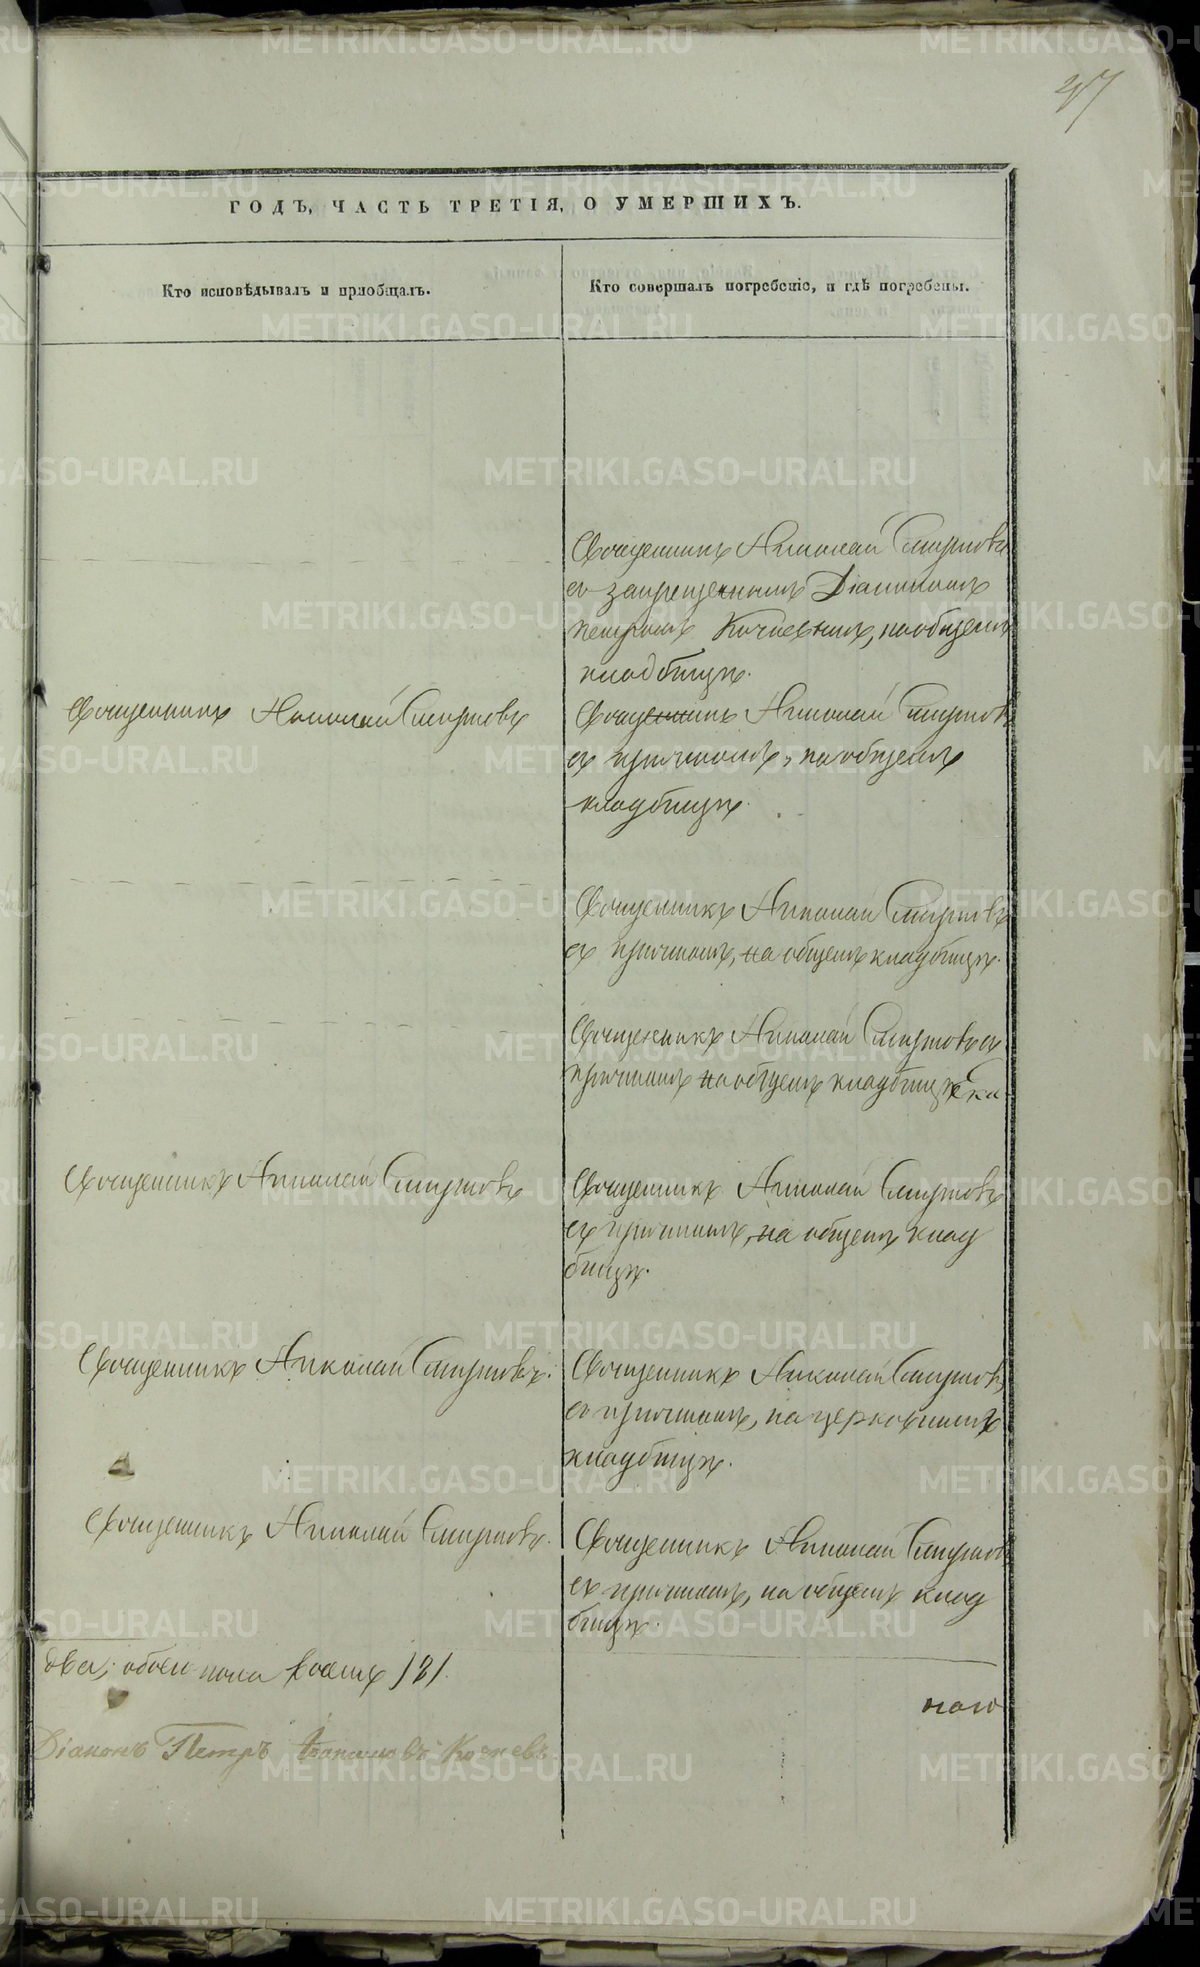 37
ГОДЪ, ЧАСТЬ ТРЕТІЯ, О УМЕРШИХЪ.
Кто исповѣдывалъ и пріобщалъ.
Кто совершалъ погребеніе, и гдѣ погребены.
Священникъ Николай Смирновъ
съ запрещеннымъ Діакономъ
Петромъ Кочневымъ, на общемъ
кладбищѣ.
Священникъ Николай Смирновъ
Священникъ Николай Смирновъ
съ причтомъ, на общемъ
кладбищѣ.
Священникъ Николай Смирновъ
съ причтомъ, на общемъ кладбищѣ.
Священникъ Николай Смирновъ съ
причтомъ на общемъ кладбищѣ
Священникъ Николай Смирновъ
Священникъ Николай Смирновъ
съ причтомъ, на общемъ клад
бищѣ.
Священникъ Николай Смирновъ.
Священникъ Николай Смирновъ,
съ причтомъ, на церковномъ
кладбищѣ.
Священникъ Николай Смирновъ.
Священникъ Николай Смирновъ
съ причтомъ, на общемъ клад
бищѣ.
два; обоего пола 121.
Діаконъ Петръ Кочневъ.
METRIKI.GASO-URAL.RU